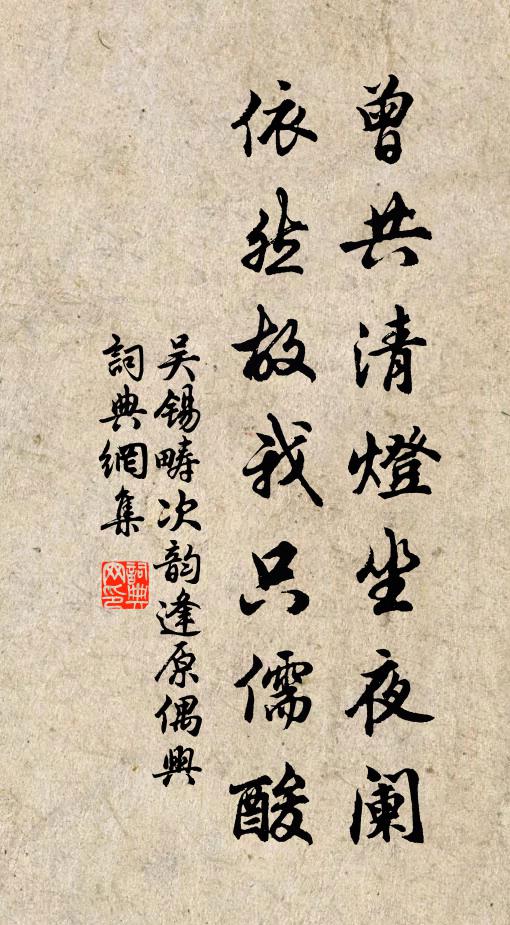 曾共清燈坐夜阑
依然故我只儒酸
吴锡畴次韵逢原偶興
詞典網集
詞典网印